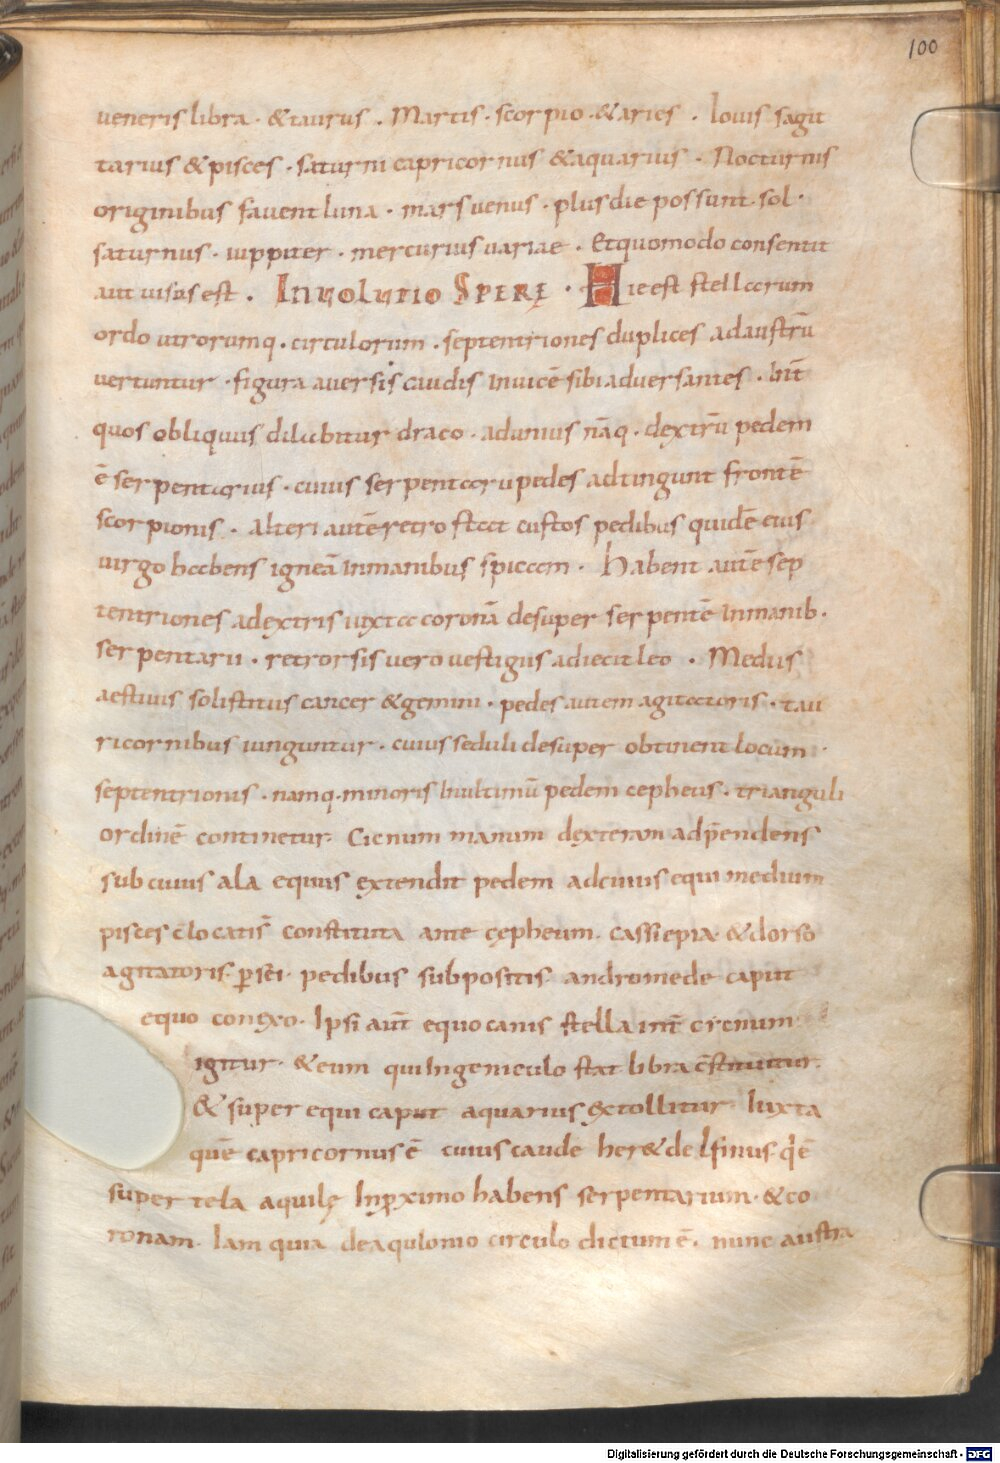 100
ueneris libra · & taurus · Martis · scorpio · & aries · Iouis sagit
tarius & pisces · saturni capricornus & aquarius · Nocturnis
originibus fauent luna · mars uenus · plus die possunt · sol ·
saturnus · iuppiter · mercurius uariae · Et quomodo consentit
aut uisus est · INUOLUTIO SPERĘ · Hic est stellarum
ordo utrorumq · circulorum · septentriones duplices ad austrū
uertuntur · figura auersis caudis inuicē sibi aduersantes · Int̄
quos obliquus dilabitur draco · ad unius nāq · dextrū pedem
ē serpentarius · cuius serpentarii pedes adtingunt frontē
scorpionis · alteri autē retro stat custos pedibus quidē eius
uirgo habens igneā in manibus spicam · Habent autē sep
tentriones a dextris iuxta coronā desuper serpentē in manib ·
serpentarii · retrorsis uero uestigiis adiecit leo · Medius
aestiuus solistitius cancer & gemini · pedes autem agitatoris · tau
ri cornibus iunguntur · cuius seduli desuper obtinent locum ·
septentrionis · namq · minoris In ultimū pedem cepheus · trianguli
ordinē continetur · Cicnum manum dexteram adp̄endens
sub cuius ala equus extendit pedem ad cuius equi medium
pisces c̄locatis̄ constituta ante cępheum · cassiepia & dorso
agitatoris · persei · pedibus subpositis andromede caput
equo conexo · Ipsi aut̄ equo canis stella int̄ cicnum
igitur · & eum qui Ingeniculo stat libra c̄stituitur ·
& super equi caput aquarius extollitur Iuxta
quē capricornus ē cuius caude her& delfinus · q̄ ē
super tela aquilę In proximo habens serpentarium · & co
ronam · Iam quia de aquilonio circulo dictum ē · nunc austra
Digitalisierung gefördert durch die Deutsche Forschungsgemeinschaft - DFG